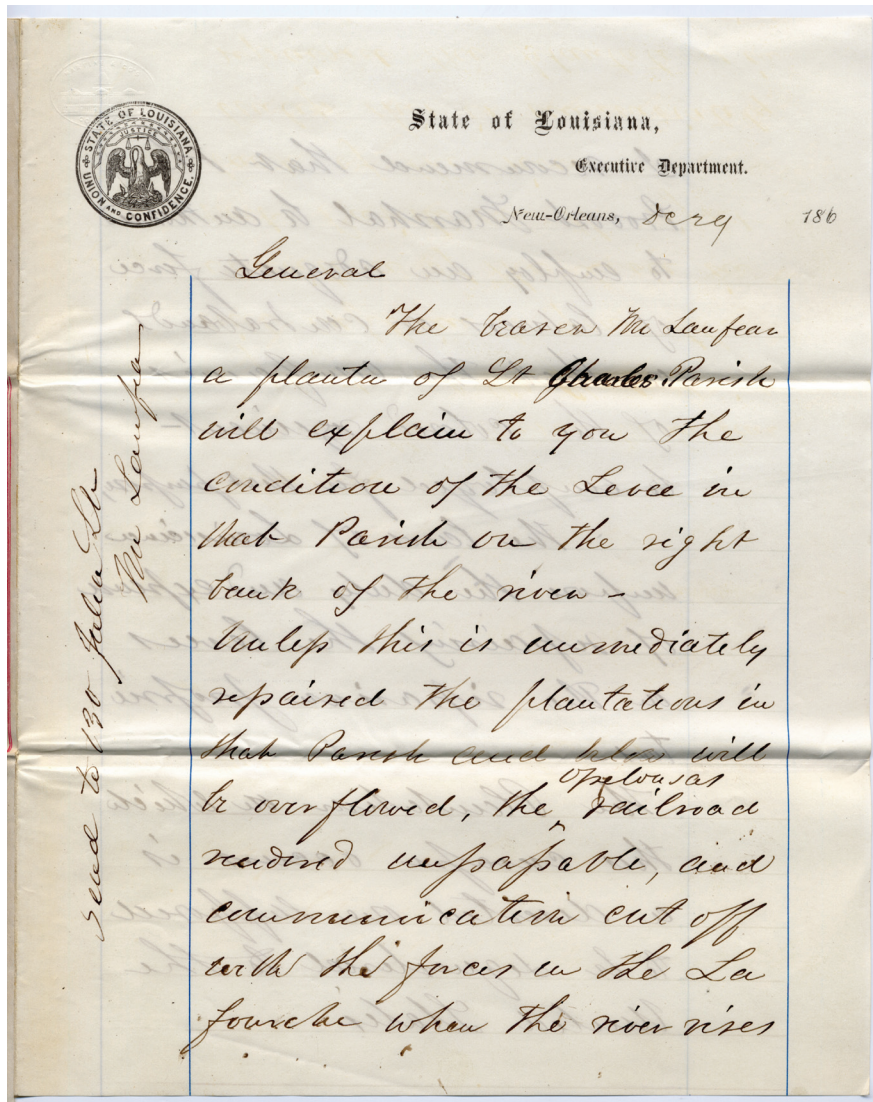 STATE OF LOUISIANA
JUSTICE
UNION AND CONFIDENCE
State of Louisiana,
Executive Department.
New-Orleans, Dec 29 186
General
The bearer Mr Lanfear
a planter of St Charles Parish
will explain to you the
condition of the Levee in
that Parish on the right
bank of the river -
Unless this is immediately
repaired the plantations in
that Parish and below will
be overflowed, the Opelousas railroad
rendered unpassable, and
communication cut off
with the forces in the La
fourche when the river rises
Send to 130 Julia St
Mr Lanfear